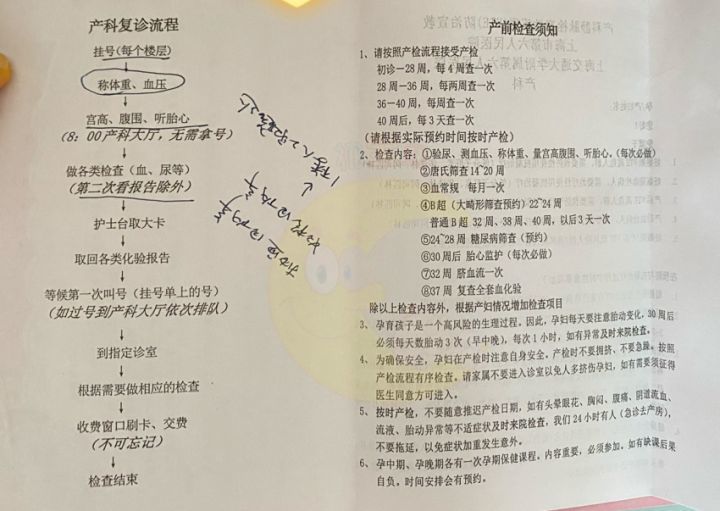 产科复诊流程
挂号(每个楼层)
称体重、血压
宫高、腹围、听胎心
(8:00产科大厅,无需拿号)
做各类检查(血、尿等)
(第二次看报告除外)
护士台取大卡
取回各类化验报告
等候第一次叫号(挂号单上的号)
(如过号到产科大厅依次排队)
到指定诊室
根据需要做相应的检查
收费窗口刷卡、交费
(不可忘记)
检查结束
产前检查须知
1、请按照产检流程接受产检
初诊—28周,每4周查一次
28周—36周,每两周查一次
36—40周,每周查一次
40周后,每3天查一次
(请根据实际预约时间按时产检)
2、检查内容:①验尿、测血压、称体重、量宫高腹围、听胎心。(每次必做)
②唐氏筛查14~20周
③血常规 每月一次
④B超(大畸形筛查预约)22~24周
普通B超 32周、38周、40周,以后3天一次
⑤24~28周 糖尿病筛查(预约)
⑥30周后 胎心监护(每次必做)
⑦32周 脐血流一次
⑧37周 复查全套血化验
除以上检查内容外,根据产妇情况增加检查项目
3、孕育孩子是一个高风险的生理过程。因此,孕妇每天要注意胎动变化,30周后
必须每天数胎动3次(早中晚),每次1小时,如有异常及时来院检查。
4、为确保安全,孕妇在产检时注意自身安全。产检时不要拥挤、不要急躁。按照
产检流程有序检查。请家属不要进入诊室以免人多挤伤孕妇,如有需要须征得
医生同意方可进入。
5、按时产检,不要随意推迟产检日期,如有头晕眼花、胸闷、腹痛、阴道流血、
流液、胎动异常等不适症状及时来院检查,我们24小时有人(急诊去产房),
不要拖延,以免症状加重发生意外。
6、孕中期、孕晚期各有一次孕期保健课程。内容重要,必须参加。如有缺课后果
自负。时间安排会有预约。